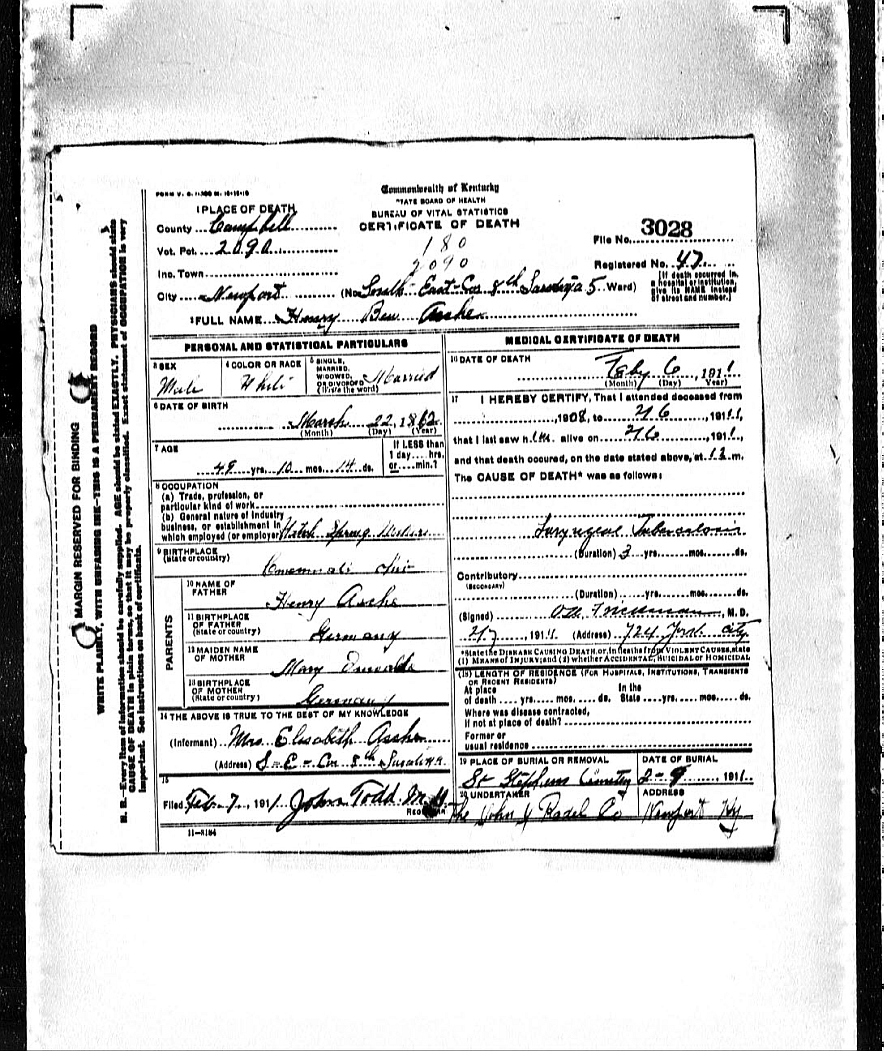 FORM V. S. 
Commonwealth of Kentucky
STATE BOARD OF HEALTH
BUREAU OF VITAL STATISTICS
CERTIFICATE OF DEATH
1 PLACE OF DEATH
County Campbell
Vot. Pct. 2090
180
2090
File No. 3028
Inc. Town
Registered No. 47
City Newport (No. South East Cor 8th Saratoga 5 Ward)
[If death occurred in a hospital or institution, give its NAME instead of street and number.]
2 FULL NAME Henry Ben
PERSONAL AND STATISTICAL PARTICULARS
3 SEX
Male
4 COLOR OR RACE
White
5 SINGLE, MARRIED, WIDOWED, OR DIVORCED (Write the word) Married
6 DATE OF BIRTH
March 22, 1862
(Month) (Day) (Year)
7 AGE
48 yrs. 10 mos. 14 ds.
If LESS than 1 day... hrs. or... min.?
8 OCCUPATION
(a) Trade, profession, or particular kind of work
(b) General nature of industry business, or establishment in which employed (or employer) Watch Spring
9 BIRTHPLACE
(State or country)
Cincinnati Ohio
PARENTS
10 NAME OF FATHER
Henry
11 BIRTHPLACE OF FATHER
(State or country)
Germany
12 MAIDEN NAME OF MOTHER
Mary
13 BIRTHPLACE OF MOTHER
(State or country)
Germany
14 THE ABOVE IS TRUE TO THE BEST OF MY KNOWLEDGE
(Informant) Mrs. Elisabeth
(Address) S-E-Cor 8th & Saratoga
15
Filed Feb 7, 1911 John Todd M.D.
REGISTRAR
11-8184
MEDICAL CERTIFICATE OF DEATH
16 DATE OF DEATH
Feby 6, 1911
(Month) (Day) Year
17 I HEREBY CERTIFY, That I attended deceased from
, 1908, to 2/6, 1911,
that I last saw him alive on 2/6, 1911,
and that death occured, on the date stated above, at 12 m.
The CAUSE OF DEATH* was as follows:
Laryngeal Tuberculosis
(Duration) 3 yrs. mos. ds.
Contributory
(SECONDARY)
(Duration) yrs. mos. ds.
(Signed) M. D.
2/7, 1911. (Address) 724 York City
*State the DISEASE CAUSING DEATH, or, in deaths from VIOLENT CAUSES, state
(1) MEANS OF INJURY; and (2) whether ACCIDENTAL, SUICIDAL or HOMICIDAL
(18) LENGTH OF RESIDENCE (FOR HOSPITALS, INSTITUTIONS, TRANSIENTS OR RECENT RESIDENTS)
At place of death yrs. mos. ds. In the State yrs. mos. ds.
Where was disease contracted,
if not at place of death?
Former or
usual residence
19 PLACE OF BURIAL OR REMOVAL
St Stephens Cemetery
DATE OF BURIAL
2-9, 1911
20 UNDERTAKER
The John J Radel Co
ADDRESS
Newport Ky
MARGIN RESERVED FOR BINDING
WRITE PLAINLY, WITH UNFADING INK—THIS IS A PERMANENT RECORD
N. B.—Every item of information should be carefully supplied. AGE should be stated EXACTLY. PHYSICIANS should state
CAUSE OF DEATH in plain terms, so that it may be properly classified. Exact statement of OCCUPATION is very
important. See instructions on back of certificate.